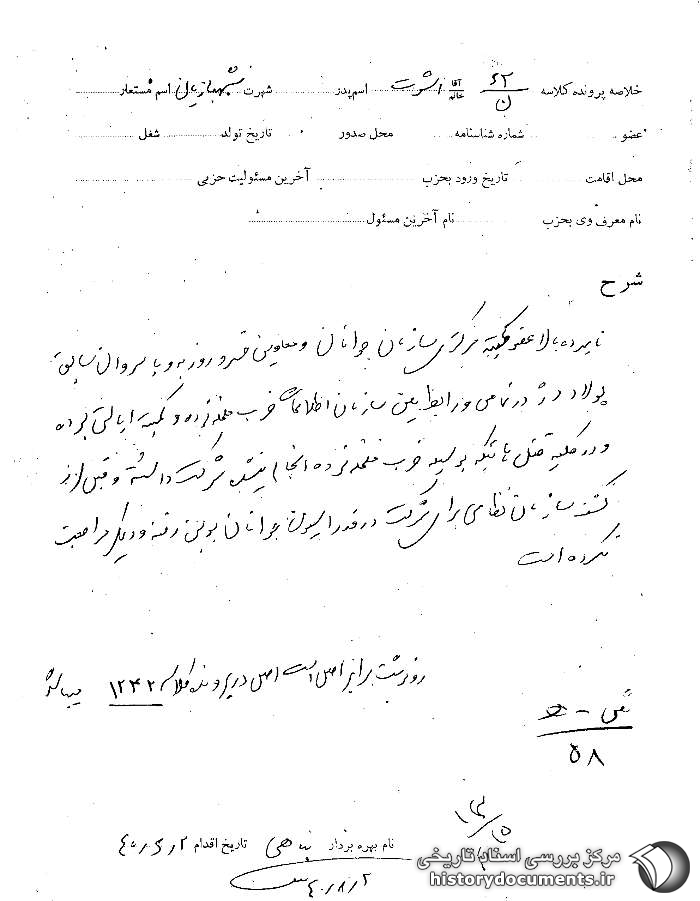 خلاصه پرونده کلاسه ۶۲ ن آقا خانم اشرت اسم پدر شهرت شهبازیان اسم مستعار
عضو شماره شناسنامه محل صدور تاریخ تولد شغل
محل اقامت تاریخ ورود بحزب آخرین مسئولیت حزبی
نام معرف وی بحزب نام آخرین مسئول
شرح
نامبرده بالا عضو کمیته مرکزی سازمان جوانان و معاونین خسرو روزبه و با سروان سابق
پولاد دژ در تماس و رابط بین سازمان اطلاعات حزب منحله توده و کمیته ایالتی بوده
و در کلیه قتل هائیکه بوسیله حزب منحله توده انجام شرکت داشته و قبل از
کشف سازمان نظامی برای شرکت در فدراسیون جوانان به وین رفته و دیگر مراجعت
نکرده است
رونوشت برابر اصل است اصل در پرونده کلاسه ۱۲۴۲ میباشد
۵۸
نام بهره بردار تاریخ اقدام ۴۰٫۶٫۲
۴۰٫۸٫۲
مرکز بررسی اسناد تاریخی
historydocuments.ir